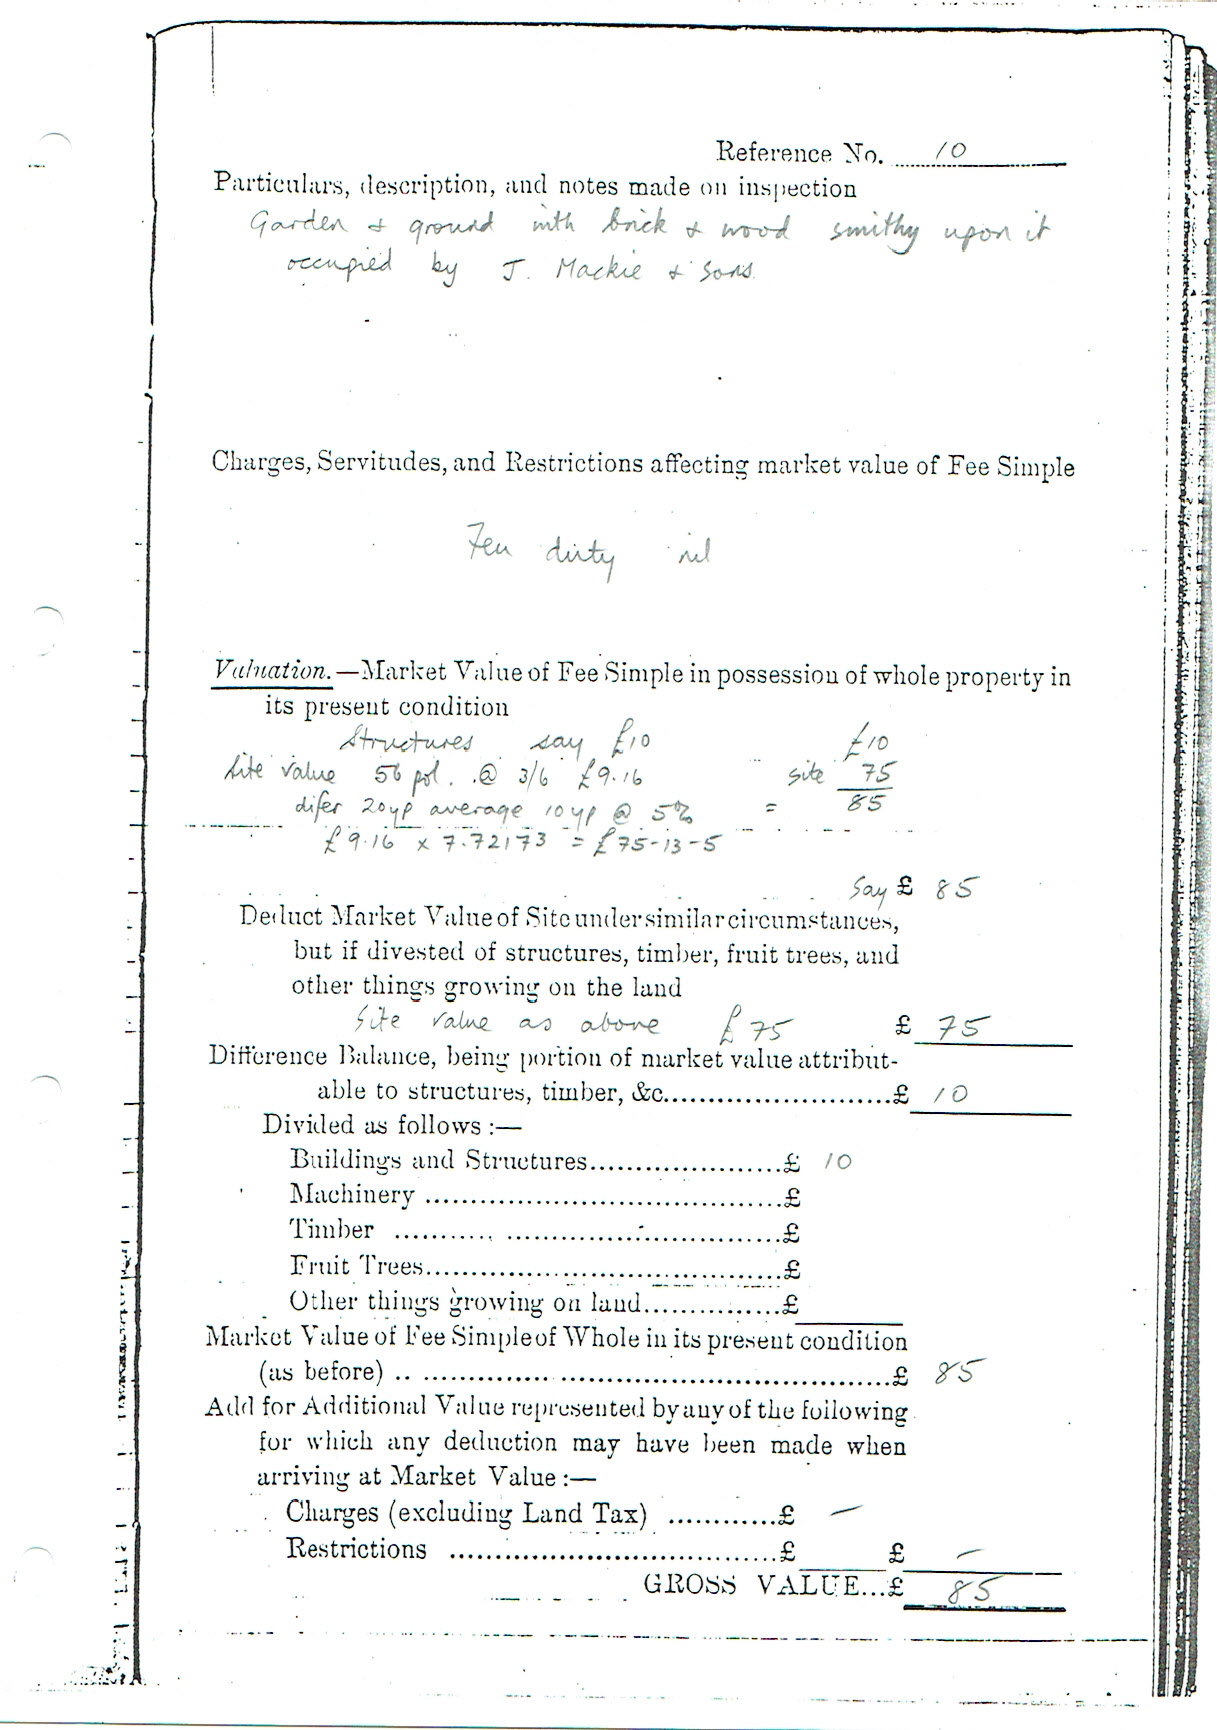 Reference No. 10
Particulars, description, and notes made on inspection
Garden & ground with brick & wood smithy upon it
occupied by J. Mackie & Sons.
Charges, Servitudes, and Restrictions affecting market value of Fee Simple
Feu duty nil
Valuation.—Market Value of Fee Simple in possession of whole property in
its present condition
Structures say £10 £10
Site value 56 pol. @ 3/6 £9.16 site 75
difer 20yp average 10yp @ 5% = 85
£9.16 x 7.72173 = £75-13-5
Say £ 85
Deduct Market Value of Site under similar circumstances,
but if divested of structures, timber, fruit trees, and
other things growing on the land
Site value as above £75 £ 75
Difference Balance, being portion of market value attribut-
able to structures, timber, &c. £ 10
Divided as follows :—
Buildings and Structures £ 10
Machinery £
Timber £
Fruit Trees £
Other things growing on land £
Market Value of Fee Simple of Whole in its present condition
(as before) £ 85
Add for Additional Value represented by any of the following
for which any deduction may have been made when
arriving at Market Value :—
Charges (excluding Land Tax) £ —
Restrictions £ £ —
GROSS VALUE...£ 85